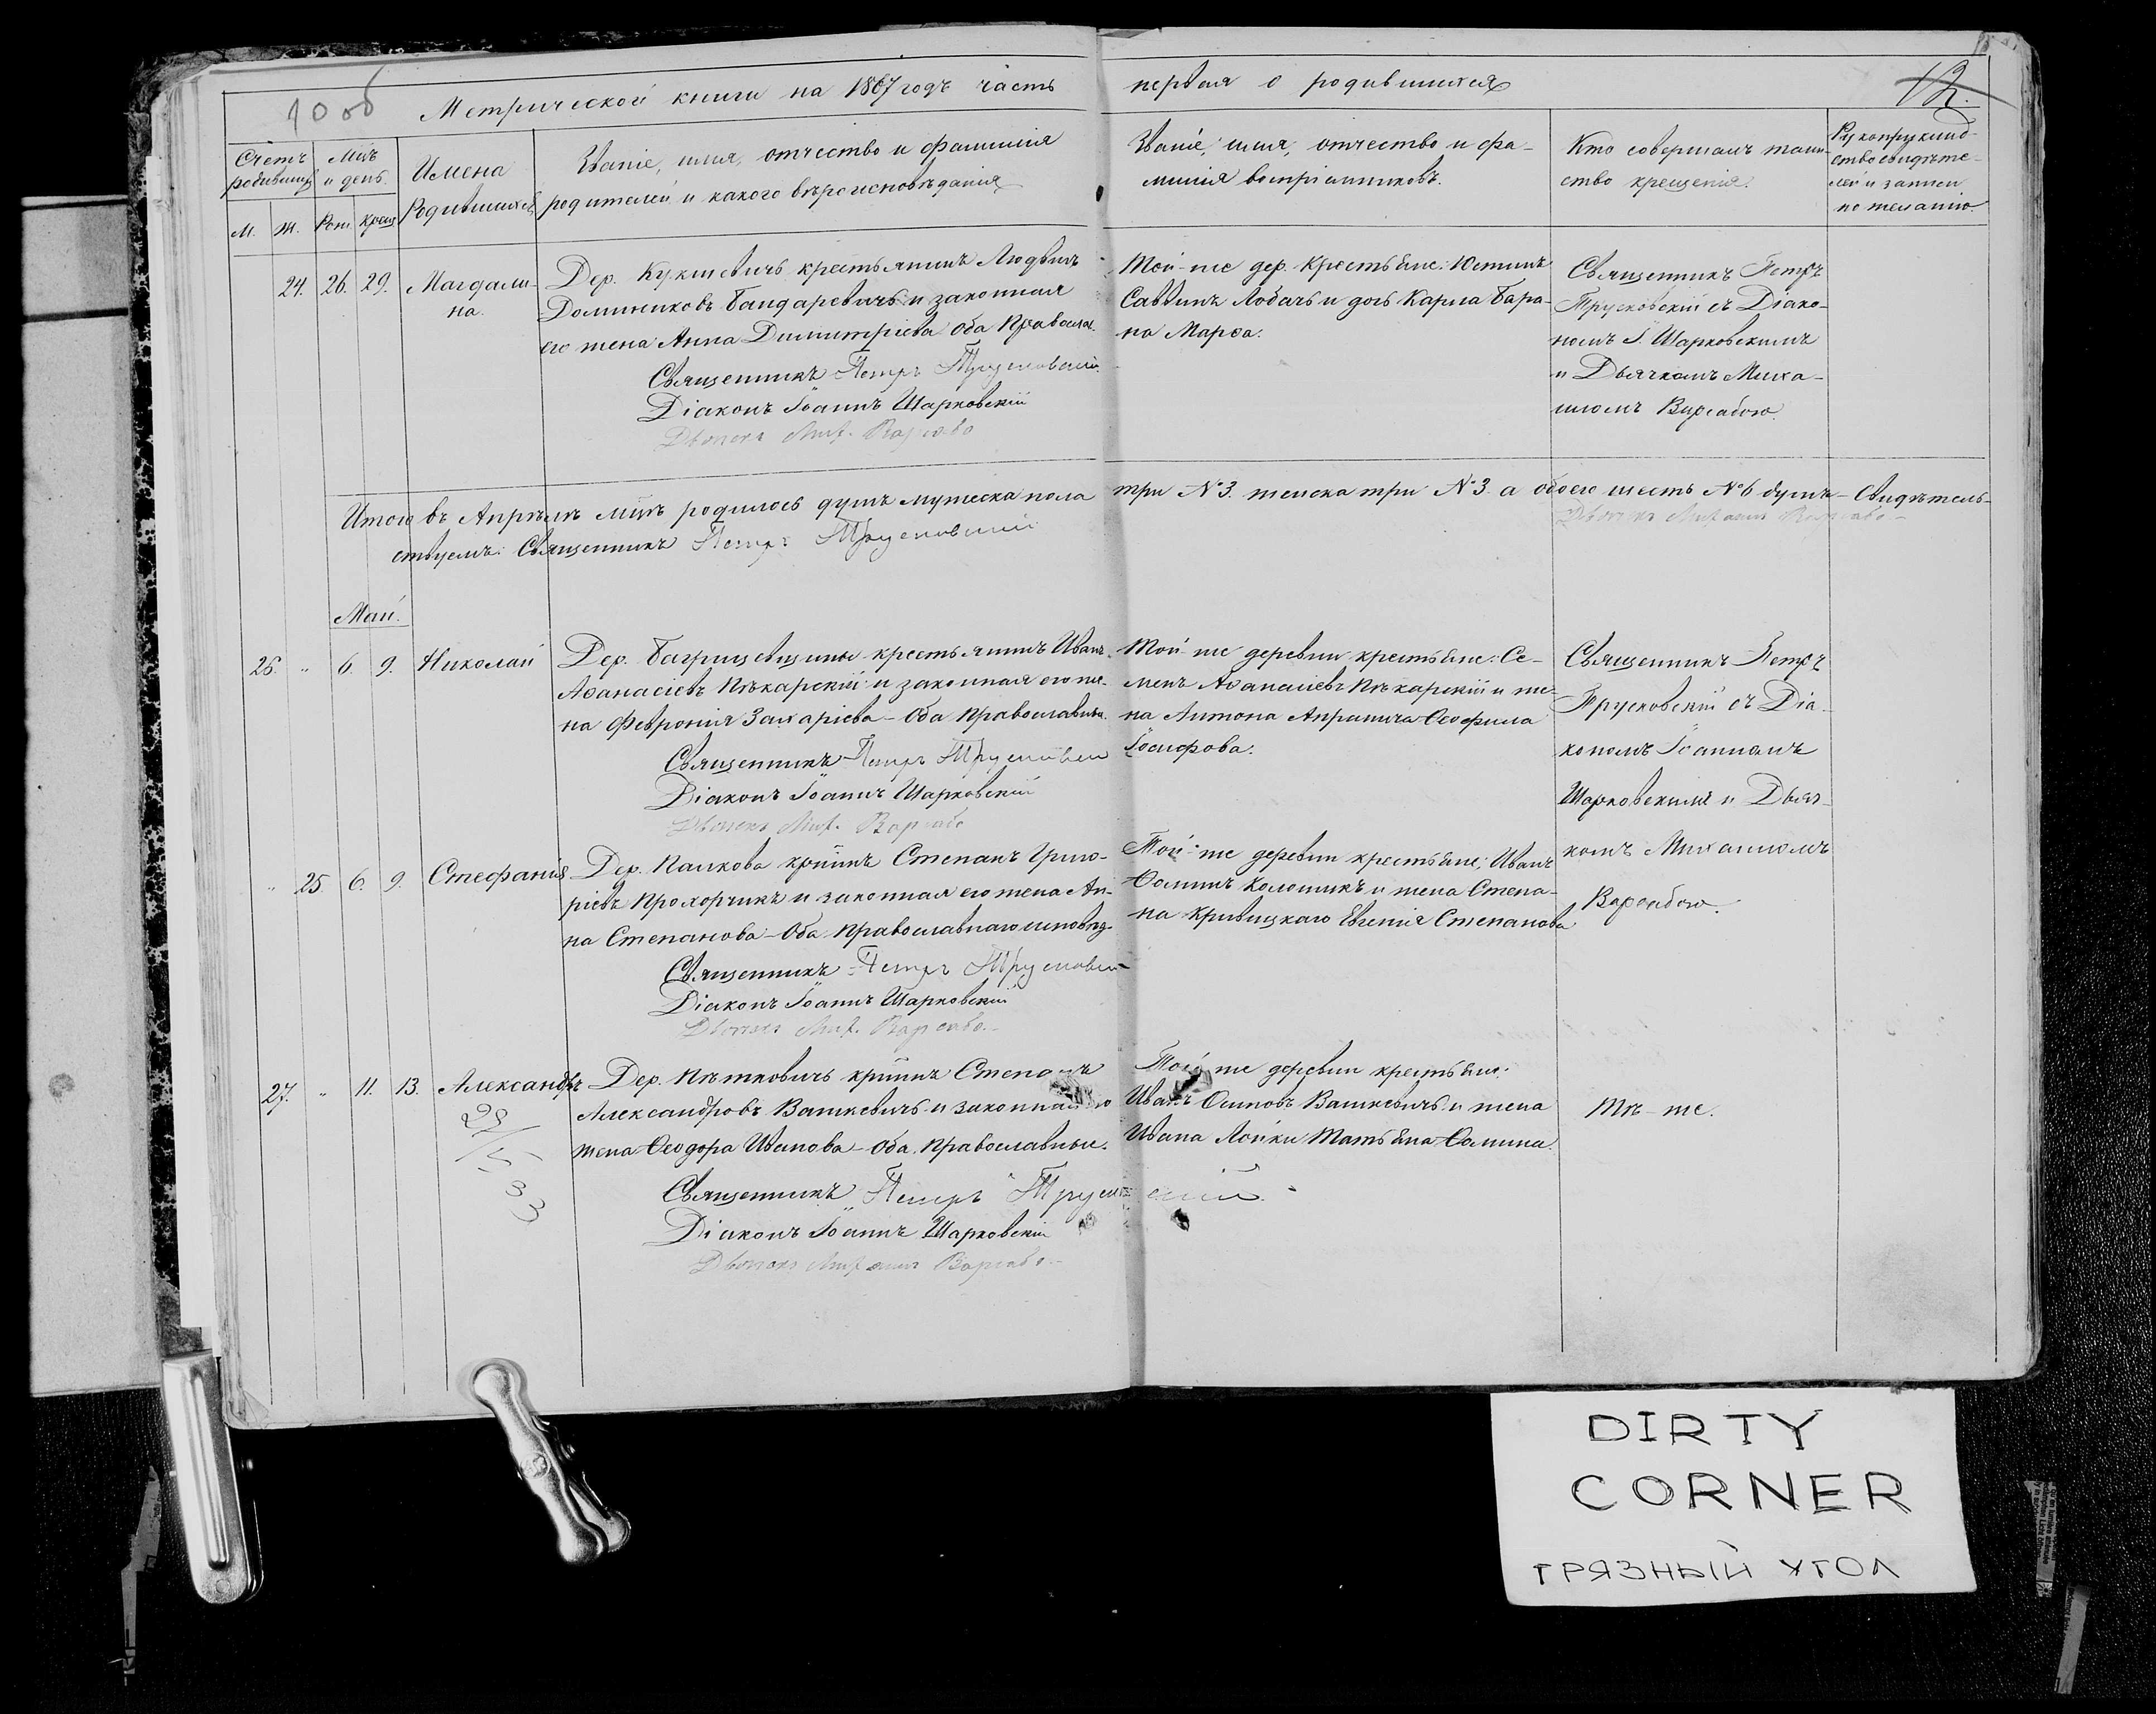 10 об
Метрической книги на 1867 годъ часть
первая о родившихся
12.
Счетъ родившихся
Мцъ и день.
Имена Родившихся
Званіе, имя, отчество и фамилія
родителей и какого вѣроисповѣданія
Званіе, имя, отчество и фа-
милія воспріемниковъ.
Кто совершалъ таин-
ство крещенія.
Рукоприклад-
ство свидѣте-
лей и записи
по желанію.
М. Ж. Рож. Крещ
24. 26. 29. Магдали-
на.
Дер. Кукшевичь крестьянинъ Людвигъ
Доминиковъ Бандаревичъ и законная
его жена Анна Димитріева Оба Православ.
Священникъ Петръ Трусковскій
Діаконъ Іоаннъ Шарковскій
Дьячекъ Мих. Варсабо
Той-же дер. крестьяне: Устинъ
Саввинъ Лобачъ и дочь Карпа Бара-
на Марѳа.
Священникъ Петръ
Трусковскій съ Діако-
номъ І. Шарковскимъ
и Дьячкомъ Миха-
иломъ Варсабою.
Итого въ Апрѣлѣ мцѣ родилось душъ мужеска пола
три №3. женска три №3. а обоего шесть №6 душъ - Свидѣтель-
ствуемъ: Священникъ Петръ Трусковскій
Дьячекъ Михаилъ Варсабо
Май.
26. " 6. 9. Николай
Дер. Багрицевщины крестьянинъ Иванъ
Аѳанасіевъ Пѣкарскій и законная его же-
на Февронія Захаріева - Оба Православные.
Священникъ Петръ Трусковскій
Діаконъ Іоаннъ Шарковскій
Дьячекъ Мих. Варсабо
Той-же деревни крестьяне: Се-
менъ Аѳанасіевъ Пѣкарскій и же-
на Антона Ѳеофила
Іосифова.
Священникъ Петръ
Трусковскій съ Діа-
кономъ Іоанномъ
Шарковскимъ и Дьяч-
комъ Михаиломъ
Варсабою.
" 25. 6. 9. Стефанія
Дер. Палкова кр҃нинъ Степанъ Григо-
ріевъ Прохорчикъ и законная его жена Ан-
на Степанова - Оба Православнаго исповѣд.
Священникъ Петръ Трусковскій
Діаконъ Іоаннъ Шарковскій
Дьячекъ Мих. Варсабо
Той-же деревни крестьяне; Иванъ
Ѳоминъ Колошикъ и жена Степа-
на Кривицкаго Евгенія Степанова
27. " 11. 13. Александръ
29/V 33
Дер. Пѣтковичь кр҃нинъ Степанъ
Александровъ Вашкевичъ и законная его
жена Ѳеодора Иванова - Оба Православные.
Священникъ Петръ Трусковскій
Діаконъ Іоаннъ Шарковскій
Дьячекъ Михаилъ Варсабо
Той же деревни крестьяне:
Иванъ Осиповъ Вашкевичъ и жена
Ивана Лойки Татьяна Ѳомина.
Тѣ-же.
DIRTY
CORNER
ГРЯЗНЫЙ УГОЛ